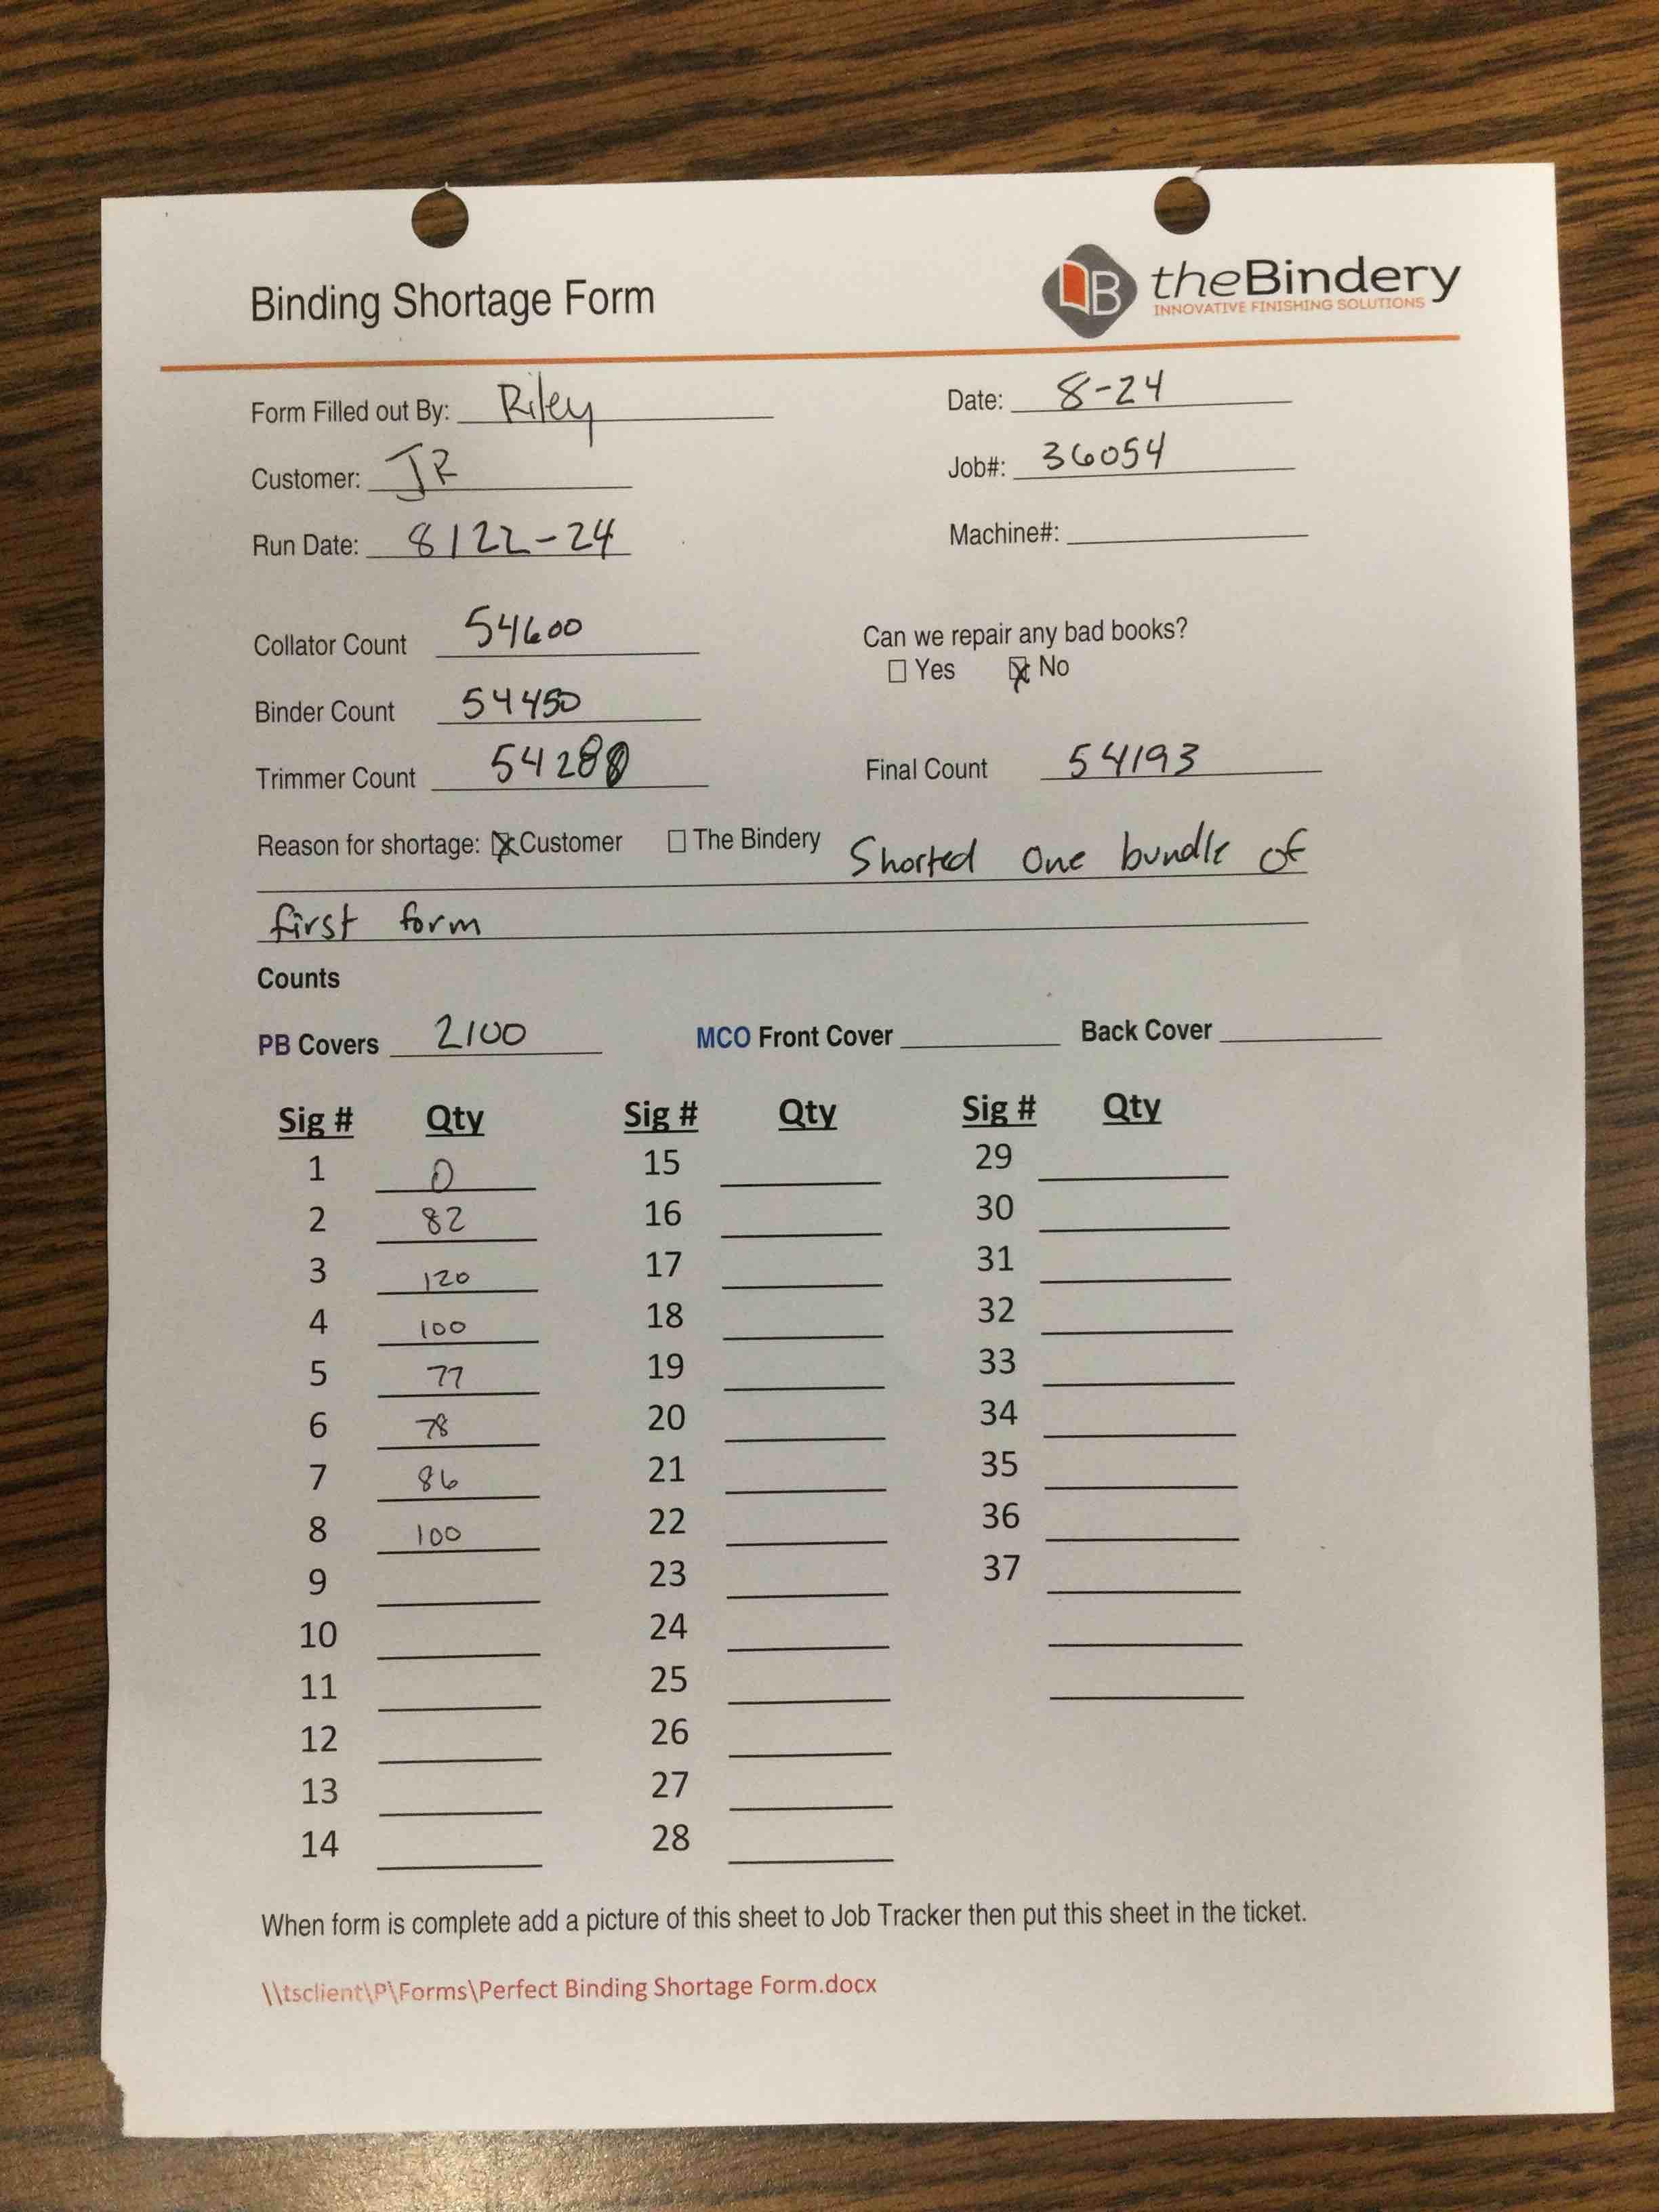 theBindery
INNOVATIVE FINISHING SOLUTIONS
Binding Shortage Form
Form Filled out By: Riley Date: 8-24
Customer: JR Job#: 36054
Run Date: 8/22-24 Machine#:
Collator Count 54600 Can we repair any bad books?
Yes No
Binder Count 54450
Trimmer Count Final Count 54193
Reason for shortage: Customer The Bindery Shorted one bundle of
first form
Counts
PB Covers 2100 MCO Front Cover Back Cover
Sig # Qty Sig # Qty Sig # Qty
1 0 15 29
2 82 16 30
3 120 17 31
4 100 18 32
5 77 19 33
6 78 20 34
7 86 21 35
8 100 22 36
9 23 37
10 24
11 25
12 26
13 27
14 28
When form is complete add a picture of this sheet to Job Tracker then put this sheet in the ticket.
\\tsclient\P\Forms\Perfect Binding Shortage Form.docx